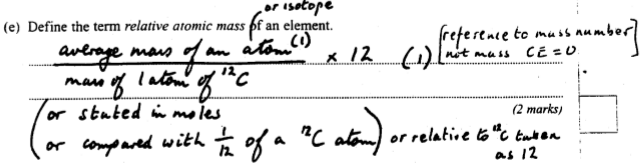 or isotope
(e) Define the term relative atomic mass of an element.
average mass of an atom (1)
mass of 1 atom of ¹²C
× 12 (1)
[reference to mass number]
[not mass CE = 0]
(or stated in moles
(2 marks)
or compared with 1/12 of a ¹²C atom) or relative to ¹²C taken
as 12